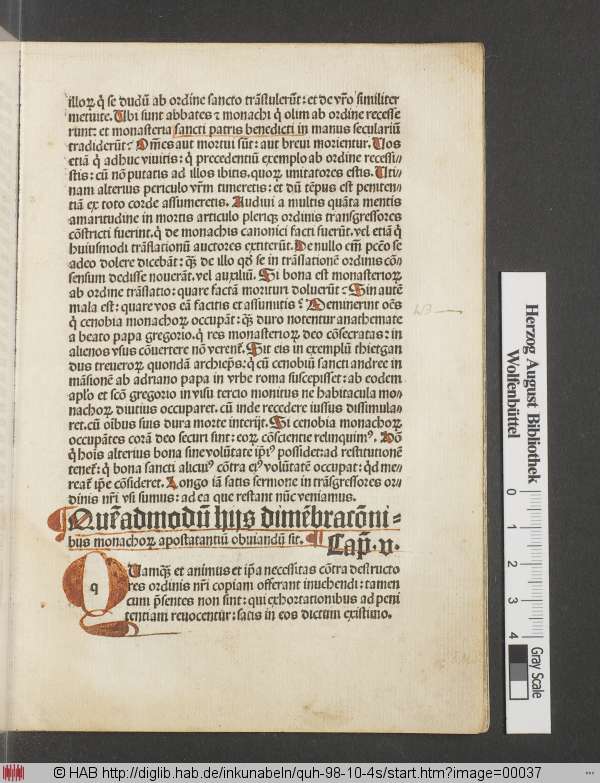 illoꝝ q̃ se dudũ ab ordine sancto trãstulerũt: et de vr̃o similiter
metuite. Ubi sunt abbates ⁊ monachi q̃ olim ab ordine recesse
runt: et monasteria sancti patris benedicti in manus seculariũ
tradiderũt? Om̃es aut mortui sũt: aut brevi morientur. Vos
etiã q̃ adhuc viuitis: q̃ precedentiũ exemplo ab ordine recessi-
stis: cũ nõ putatis ad illos ibitis. quoꝝ imitatores estis. Uti-
nam alterius periculo vr̃m timeretis: et dũ tẽpus est peniten-
tiã ex toto corde assumeretis. Audiui a multis quãta mentis
amaritudine in mortis articulo pleriqꝫ ordinis transgressores
cõstricti fuerint. q̃ de monachis canonici facti fuerũt. vel etiã q̃
huiusmodi trãslationũ auctores extiterũt. De nullo em̃ pctõ se
adeo dolere dicebãt: qꝫ de illo qđ se in trãslationẽ ordinis cõ-
sensum dedisse nouerãt. vel auxiliũ. Si bona est monasterioꝝ
ab ordine trãslatio: quare factã morituri doluerũt? Sin autẽ
mala est: quare vos eã facitis et assumitis? Meminerint oẽs
q̃ cenobia monachoꝝ occupãt: qꝫ duro notentur anathemate
a beato papa gregorio. q̃ res monasterioꝝ deo cõsecratas: in
alienos vsus cõuertere nõ verent᷑. Sit eis in exemplũ thietgan
dus treueroꝝ quondã archiep̃s: q̃ cũ cenobiũ sancti andree in
mãsionẽ ab adriano papa in vrbe roma suscepisset: ab eodem
apl̃o et scõ gregorio in visu tercio monitus ne habitacula mo-
nachoꝝ diutius occuparet. cũ inde recedere iussus dissimula-
ret. cũ oĩbus suis dura morte interijt. Si cenobia monachoꝝ
occupãtes corã deo securi sint: eoꝝ cõsciẽtie relinquimꝰ. Nõ
q̃ hoĩs alterius bona sine volũtate ip̃iꝰ possidet: ad restitutionẽ
tenet᷑: q̃ bona sancti alicuiꝰ cõtra eiꝰ volũtatẽ occupat: qđ me-
reat᷑ ip̃e cõsideret. Longo iã satis sermone in trãsg̃ressores or-
dinis nr̃i vsi sumus: ad ea que restant nũc veniamus.
Quẽadmodũ hijs dimẽbratõni-
bus monachoꝝ apostatantiũ obuiandũ sit. Cap̃. v.
q Uamqꝫ et animus et ip̃a necessitas cõtra destructo
res ordinis nr̃i copiam offerant inuehendi: tamen
cum p̃sentes non sint: qui exhortationibus ad peni
tentiam reuocentur: satis in eos dictum existimo.
Herzog August Bibliothek
Wolfenbüttel
0 1 2 3 4
Gray Scale
© HAB http://diglib.hab.de/inkunabeln/quh-98-10-4s/start.htm?image=00037